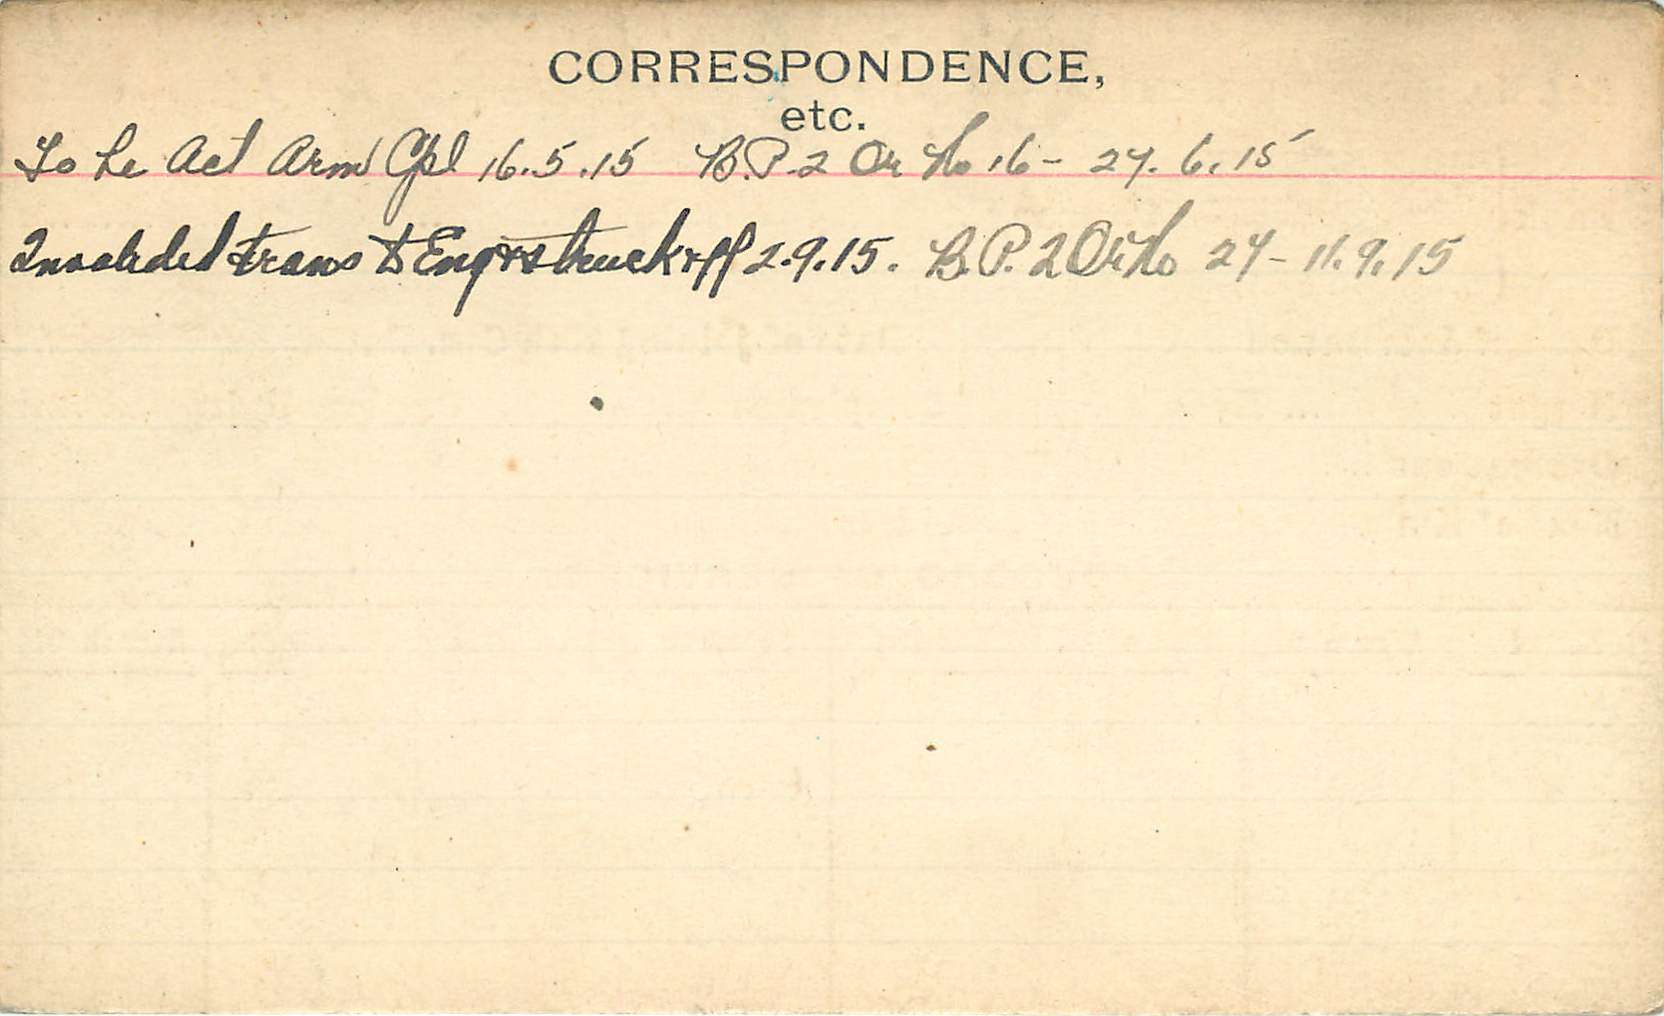 CORRESPONDENCE,
etc.
To be Act Arm Cpl 16.5.15 B.P. 2 Or No 16 - 27.6.15
Invalided trans to Eng & struck off 2.9.15. B.P. 2 Or No 27 - 11.9.15